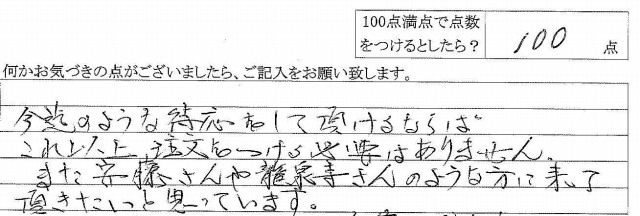 100点満点で点数
をつけるとしたら？ 100 点
何かお気づきの点がございましたら、ご記入をお願い致します。
今迄のような待応をして頂けるならば
これ以上注文をつける必要はありません。
また安藤さんや龍泉寺さんのような方に来て
頂きたいと思っています。